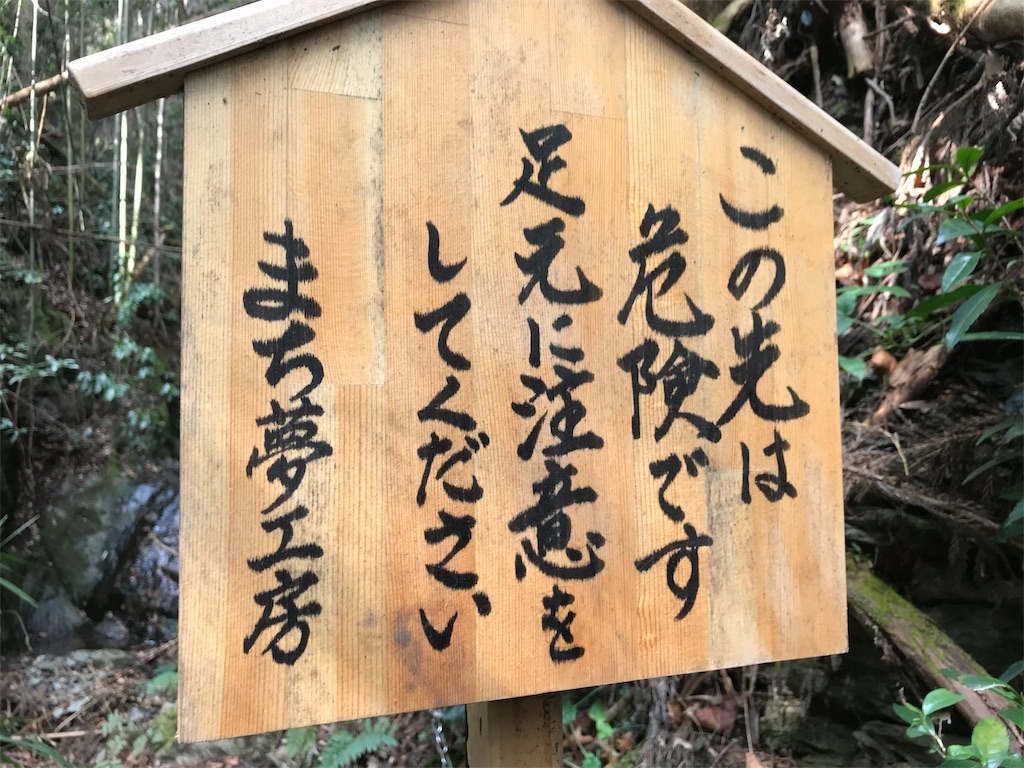 この先は
危険です
足元に注意を
してください
まち夢工房